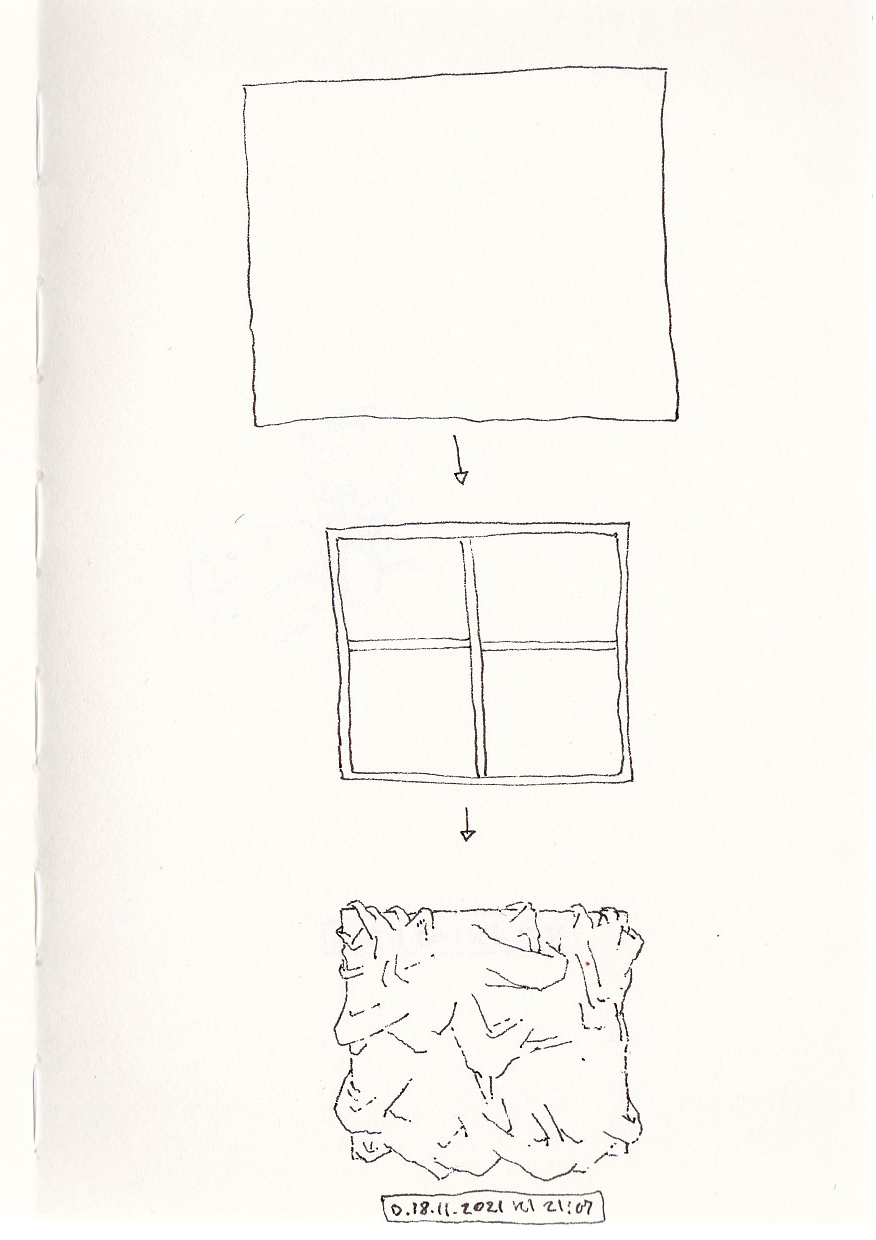 D.18.11.2021 kl 21:07